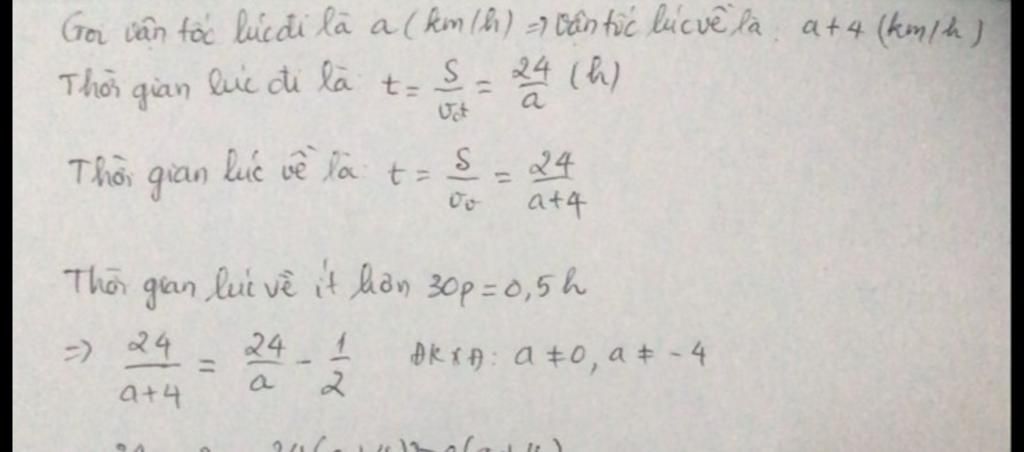 Gọi vận tốc lúc đi là a (km/h) => vận tốc lúc về là: a+4 (km/h)
Thời gian lúc đi là t = S/v_đ = 24/a (h)
Thời gian lúc về là: t = S/v_v = 24/(a+4)
Thời gian lúc về ít hơn 30p = 0,5h
=> 24/(a+4) = 24/a - 1/2 ĐKXĐ: a ≠ 0, a ≠ -4